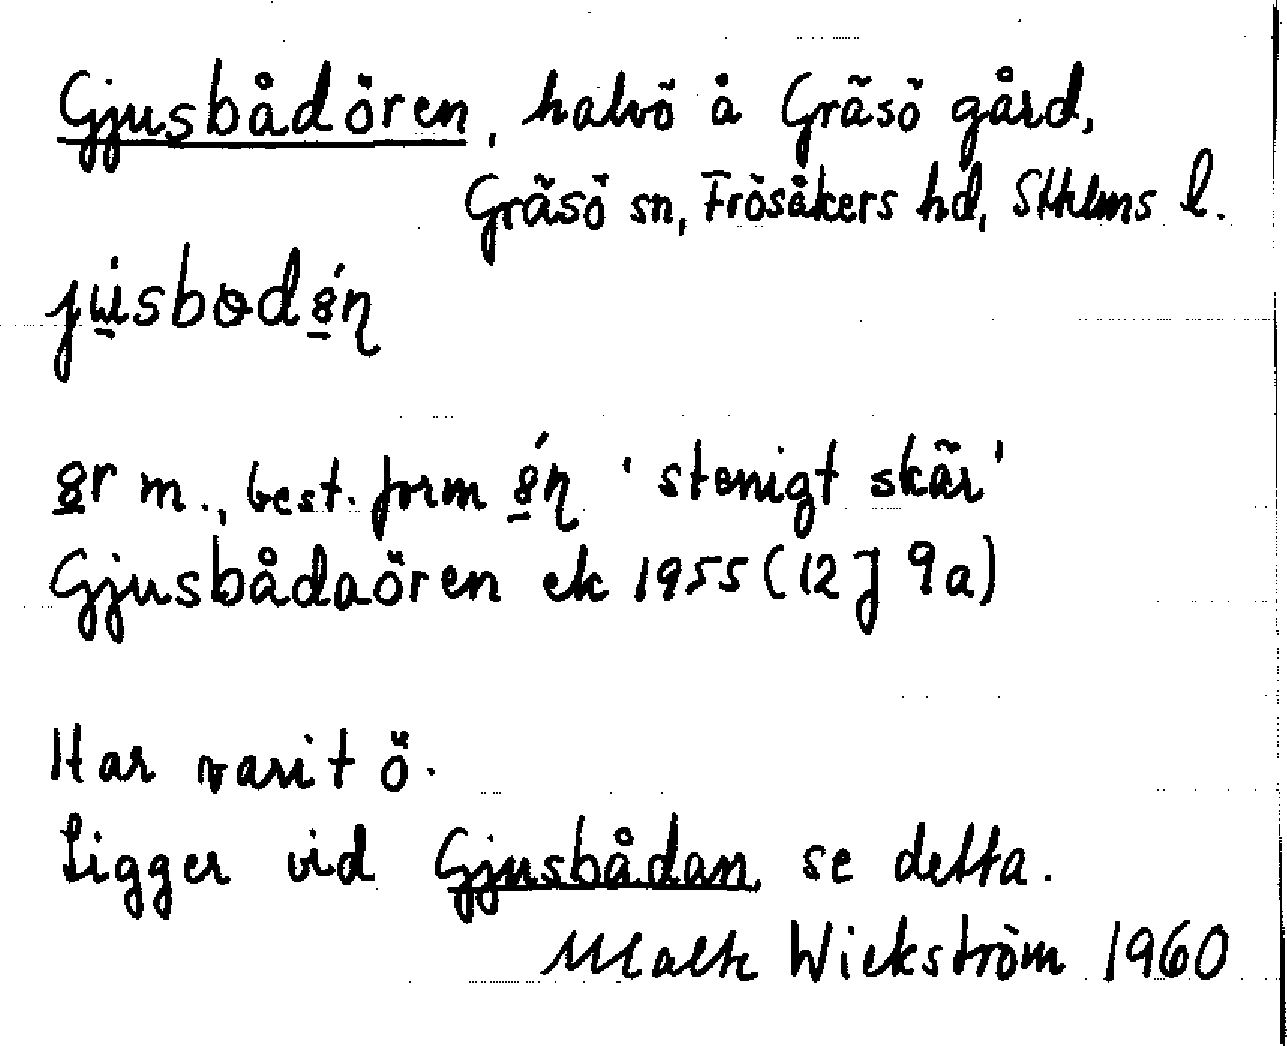 Gjusbådören, halvö å Gräsö gård,
Gräsö sn, Frösåkers hd, Sthlms l.
best. form 'stenigt skär'
Gjusbådaören ek 1955 (12J 9a)
Har varit ö.
Ligger vid Gjusbådan, se detta.
Malte Wickström 1960